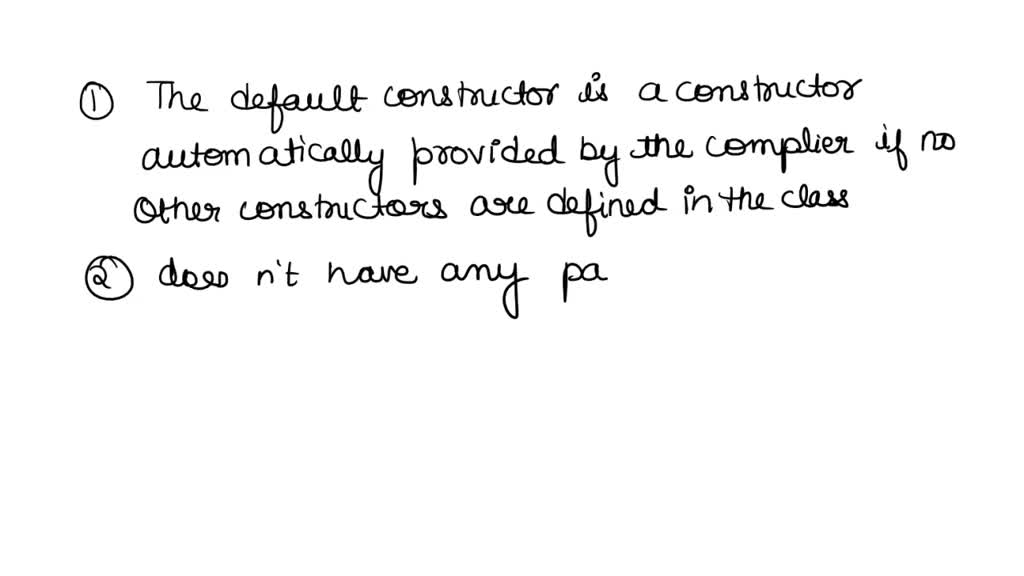 ① The default constructor is a constructor
automatically provided by the complier if no
Other constructors are defined in the class
② does n't have any pa